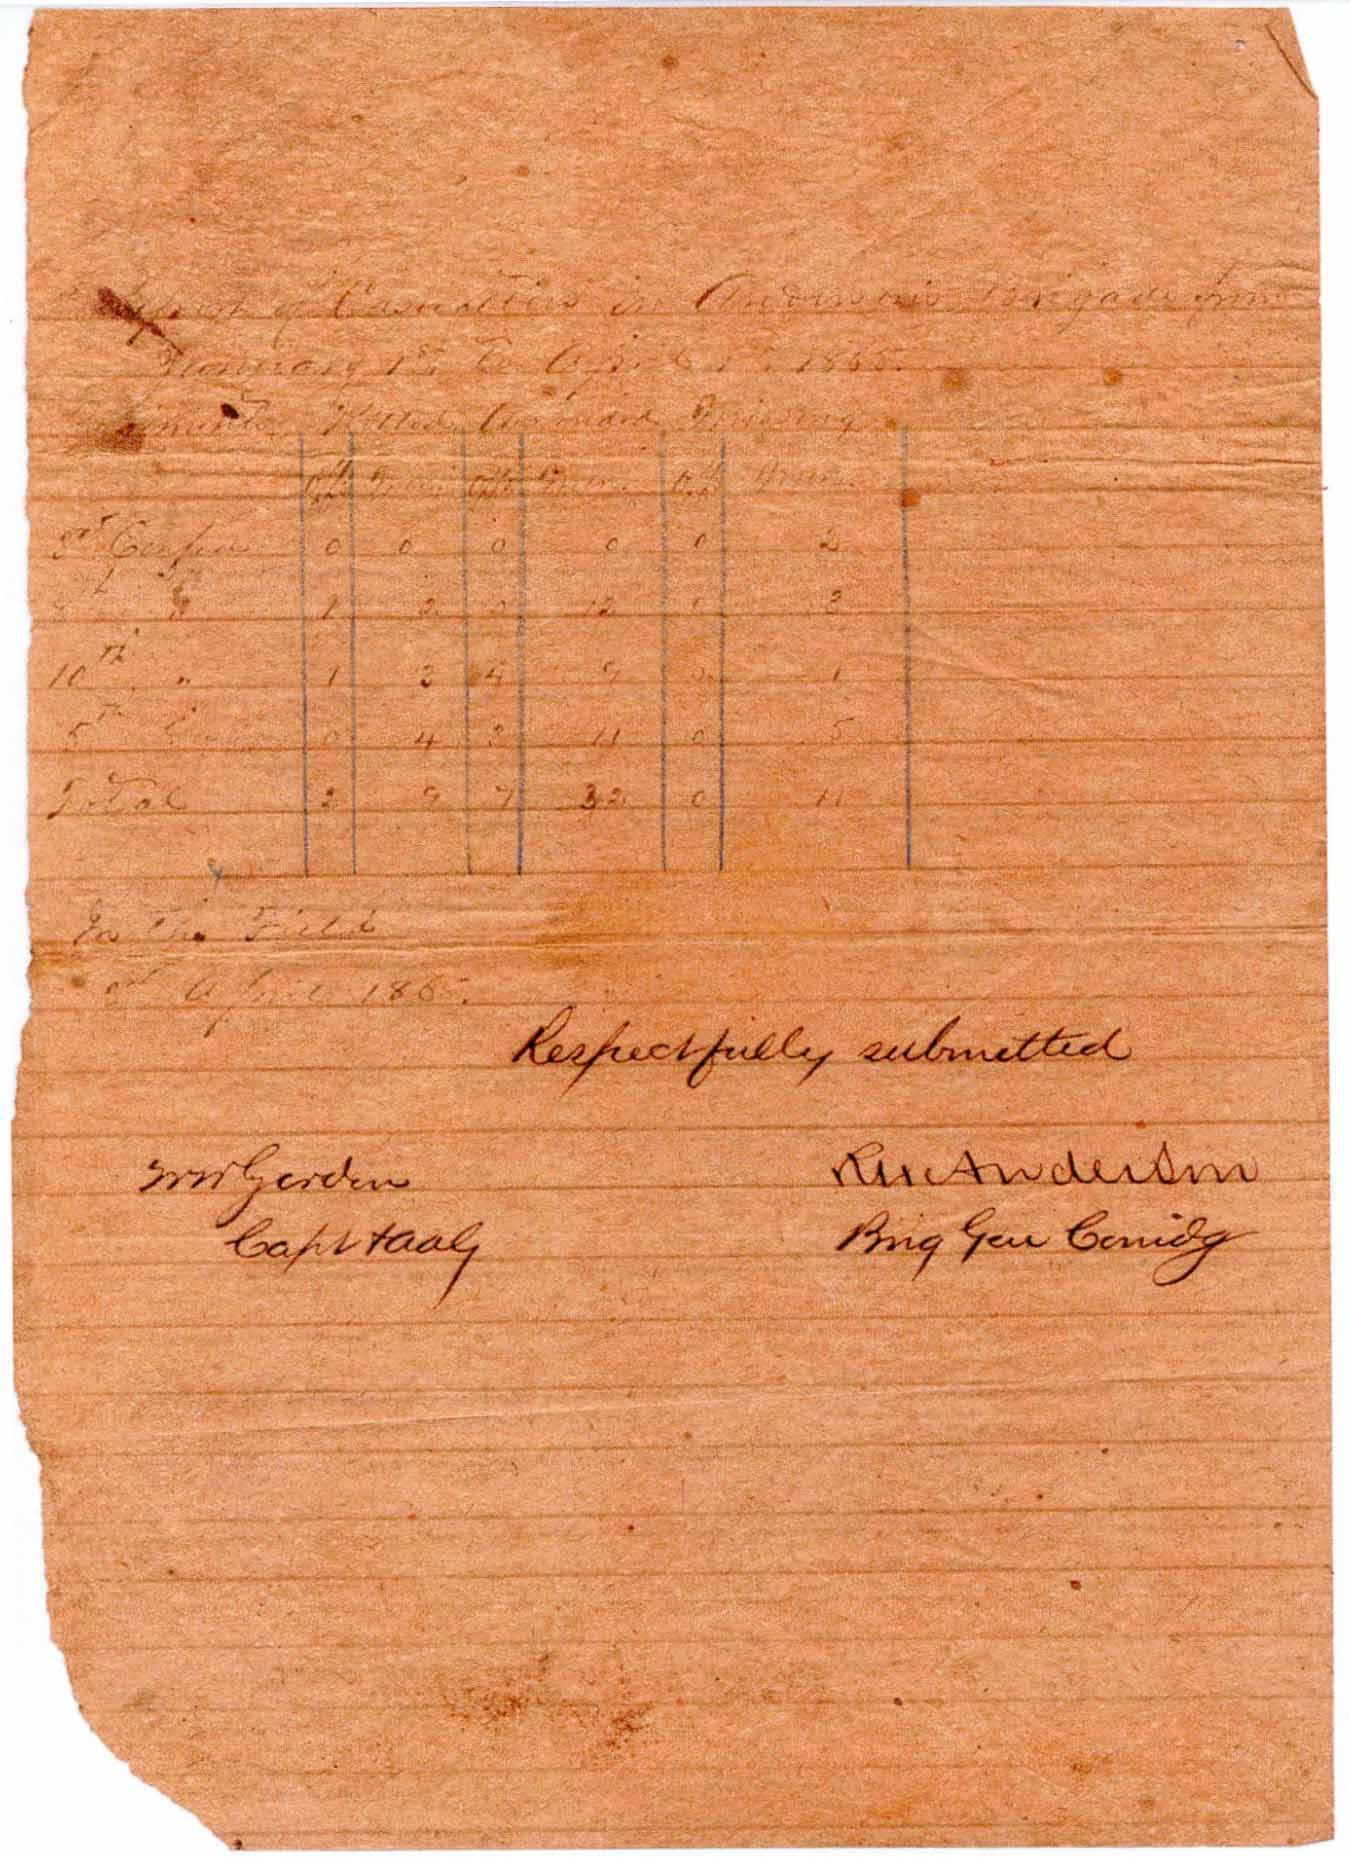 Report of Casualties in Anderson's Brigade from
January 1st to April 1st 1865.
Regiments Killed Wounded Missing
Off Men Off Men Off Men
Confed 0 0 0 0 0 2
8th " 1 2 12 3
10th " 1 3 4 9 0 1
5th " 0 4 3 11 0 5
Total 2 9 7 32 0 11
In the Field
April 1865.
Respectfully submitted
Gordon
Capt & AAG
Anderson
Brig Gen Comdg